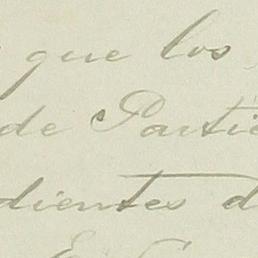 que los
de Partic
dientes d